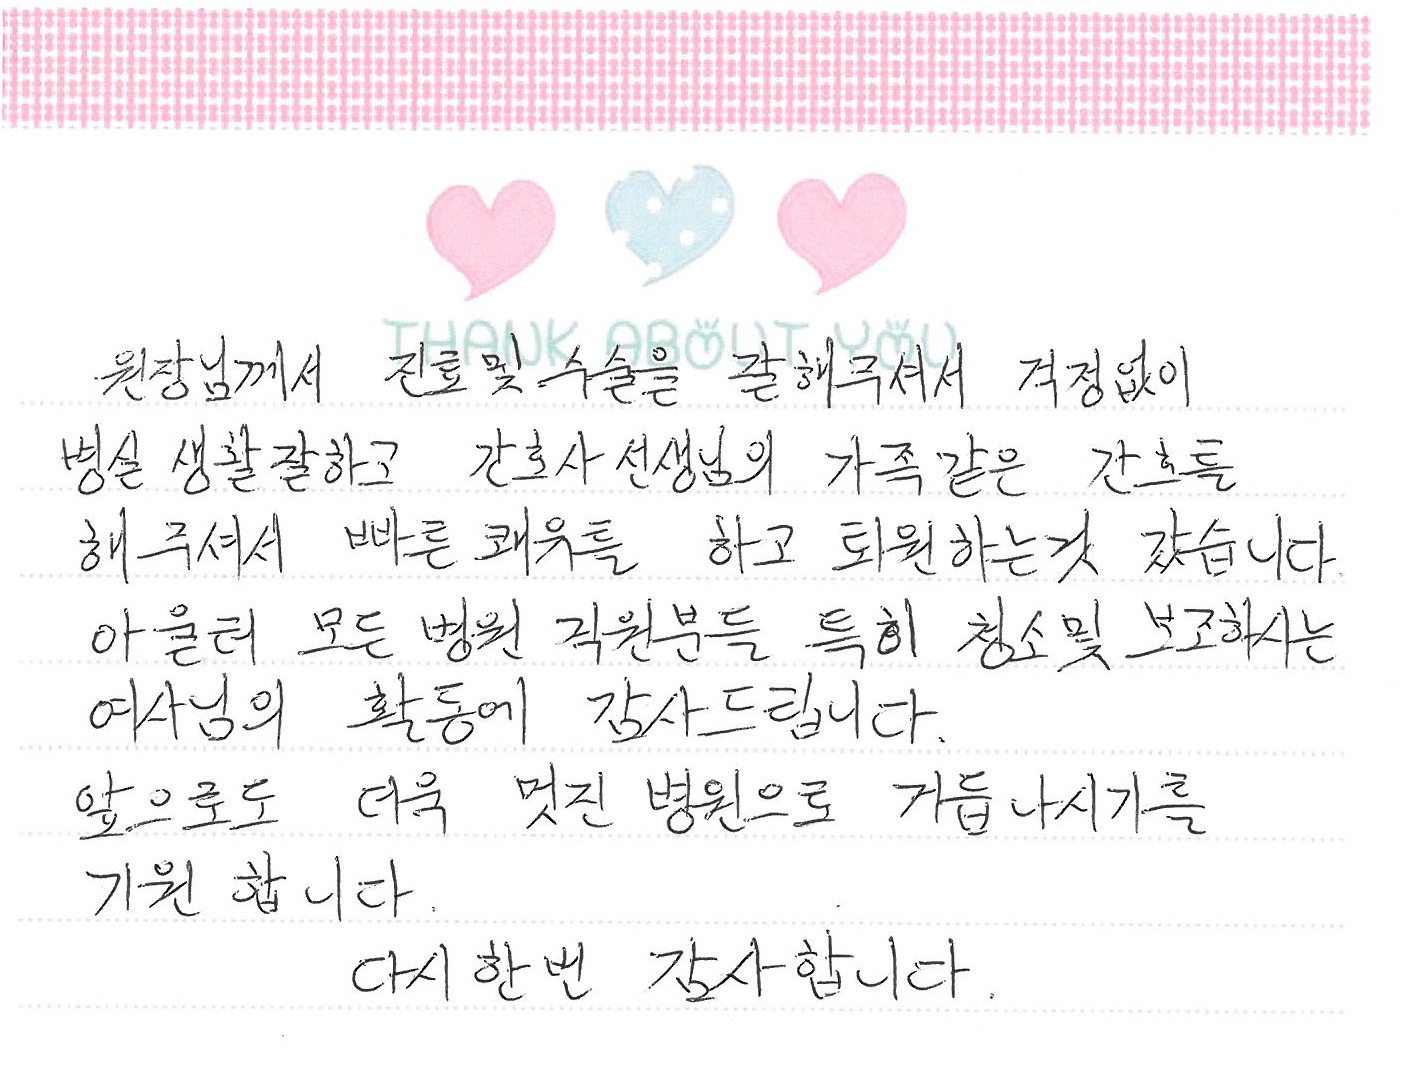 THANK ABOUT YOU
원장님께서 진료및 수술을 잘해주셔서 걱정없이
병실 생활잘하고 간호사선생님의 가족같은 간호를
해주셔서 빠른쾌유를 하고 퇴원하는것 갔습니다.
아울러 모든 병원 직원분들 특히 청소및 보조하시는
여사님의 활동에 감사드립니다.
앞으로도 더욱 멋진 병원으로 거듭나시기를
기원 합니다.
다시한번 감사합니다.